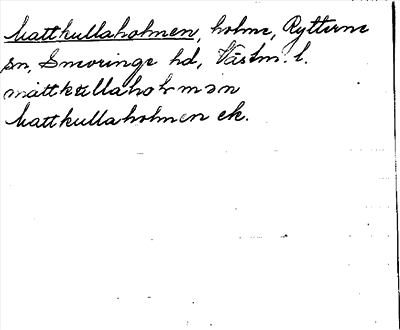 Mattkullaholmen, holme, Rytterne
sn, Snevringe hd, Västm. l.
mattkullaholmən
Mattkullaholmen ek.